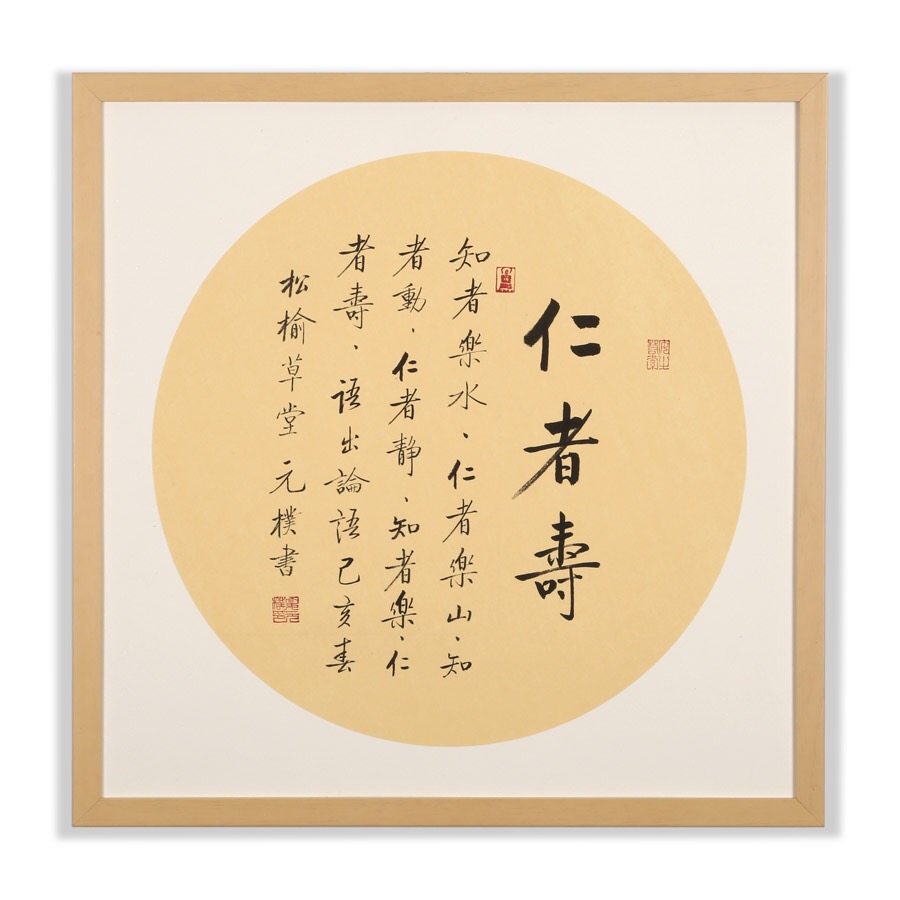 仁者壽
知者樂水、仁者樂山、知
者動、仁者静、知者樂、仁
者壽、語出論語己亥春
松榆草堂元樸書